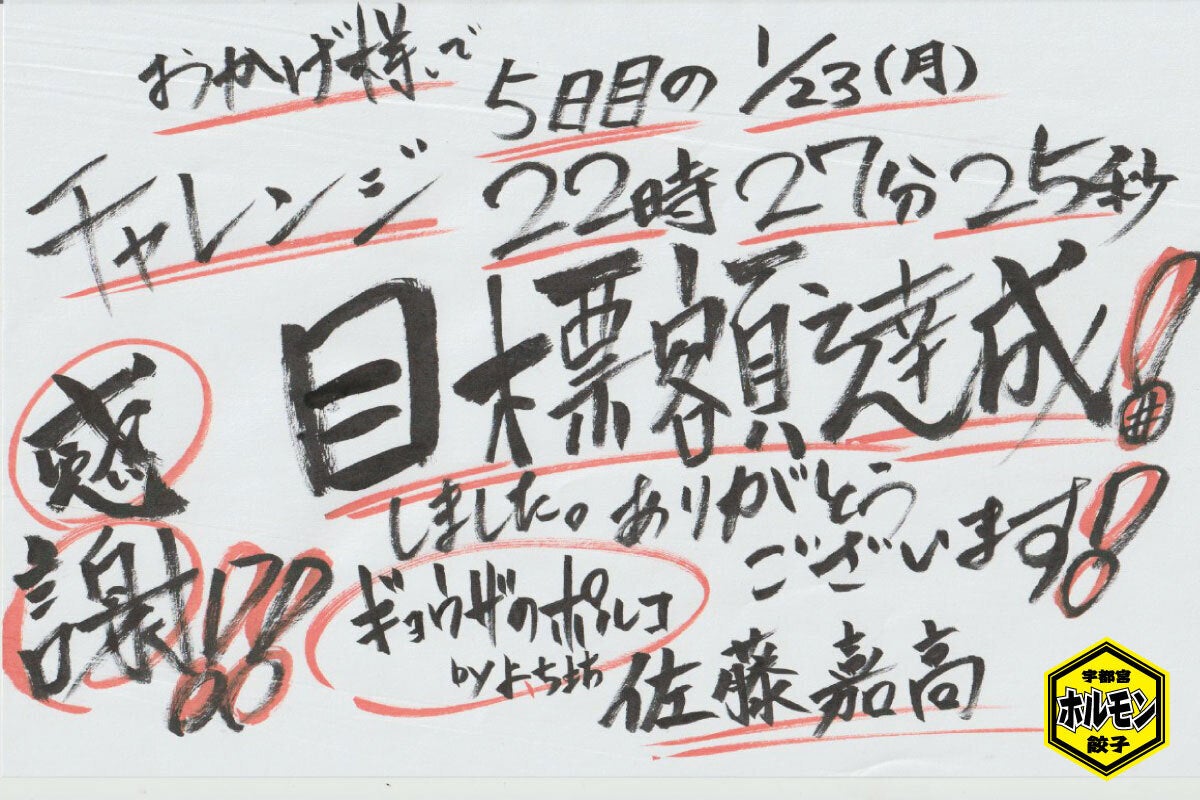 おかげ様で
チャレンジ
5日目の 1/23(月)
22時27分25秒
目標額達成!
しました。ありがとう
ございます!
感謝!!
ギョウザのポルコ
by よっちゃん
佐藤嘉高
宇都宮
ホルモン
餃子